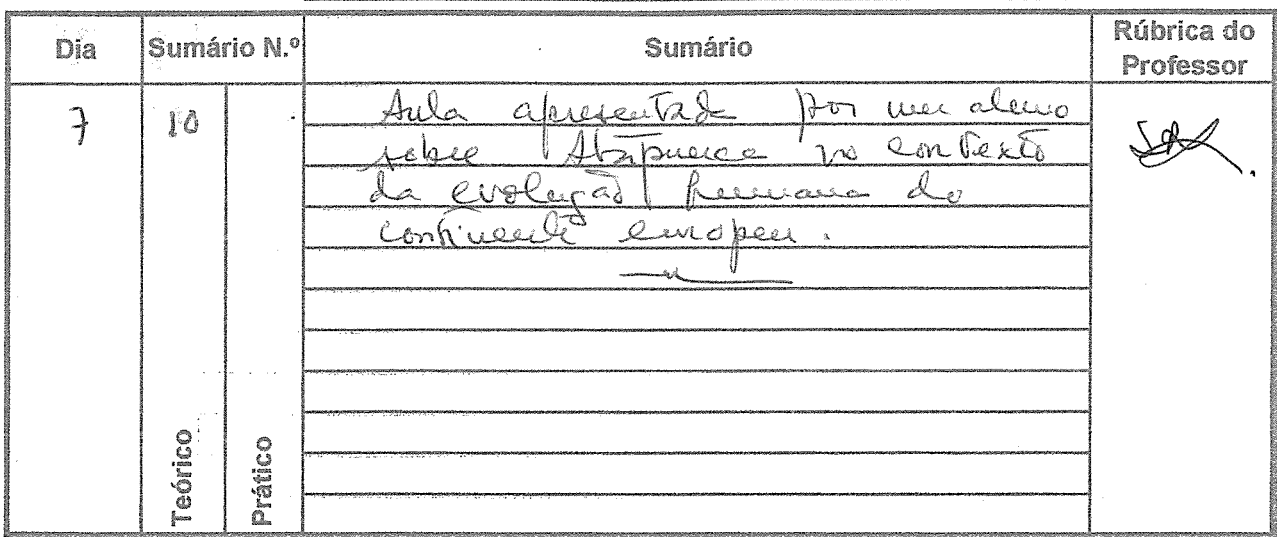 Dia Sumário N.º Sumário Rúbrica do Professor
7 10 Aula apresentada por um aluno
sobre Atapuerca no contexto
da evolução humana do
continente europeu.
Teórico
Prático